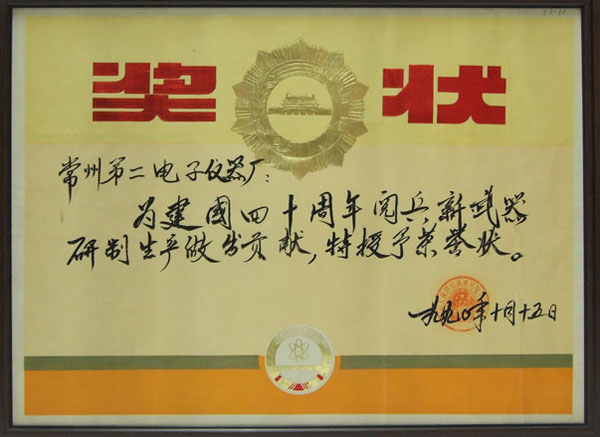 奖状
常州第二电子仪器厂：
为建國四十周年阅兵新武器
研制生产做出贡献，特授予荣誉状。
一九九〇年十月十五日